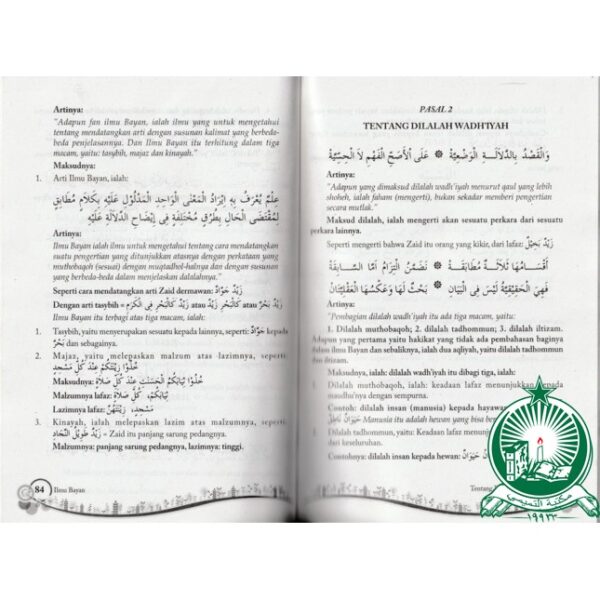 Artinya:
"Adapun fan ilmu Bayan, ialah ilmu yang untuk mengetahui
tentang mendatangkan arti dengan susunan kalimat yang berbeda-
beda penjelasannya. Dan Ilmu Bayan itu terhitung dalam tiga
macam, yaitu: tasybih, majaz dan kinayah."
Maksudnya:
1. Arti Ilmu Bayan, ialah:
عِلْمٌ يُعْرَفُ بِهِ إِيْرَادُ الْمَعْنَى الْوَاحِدِ الْمَدْلُوْلِ عَلَيْهِ بِكَلَامٍ مُطَابِقٍ
لِمُقْتَضَى الْحَالِ بِطُرُقٍ مُخْتَلِفَةٍ فِى إِيْضَاحِ الدَّلَالَةِ عَلَيْهِ
Artinya:
Ilmu Bayan ialah ilmu untuk mengetahui tentang cara mendatangkan
suatu pengertian yang ditunjukkan atasnya dengan perkataan yang
muthobaqoh (sesuai) dengan muqtadhol-halnya dan dengan susunan
yang berbeda-beda dalam menjelaskan dalalahnya."
Seperti cara mendatangkan arti Zaid dermawan: زَيْدٌ جَوَّادٌ
Dengan arti tasybih = زَيْدٌ كَالْبَحْرِ فِى الْكَرَمِ atau زَيْدٌ كَالْبَحْرِ atau زَيْدٌ بَحْرٌ
Ilmu Bayan itu terbagi atas tiga macam, ialah:
1. Tasybih, yaitu menyerupakan sesuatu kepada lainnya, seperti: جَوَادٌ kepada
بَحْرٌ dan sebagainya.
2. Majaz, yaitu melepaskan malzum atas lazimnya, seperti
خُذُوْا زِيْنَتَكُمْ عِنْدَ كُلِّ مَسْجِدٍ
Maksudnya: خُذُوْا ثِيَابَكُمُ الْحَسَنَتَ عِنْدَ كُلِّ صَلَاةٍ
Malzumnya lafaz: ثِيَابَكُمْ, كُلِّ صَلَاةٍ
Lazimnya lafaz: مَسْجِدٍ, زِيْنَتَهُنَّ
3. Kinayah, ialah melepaskan lazim atas malzumnya, seperti
زَيْدٌ طَوِيْلُ النِّجَادِ = Zaid itu panjang sarung pedangnya.
Malzumnya: panjang sarung pedangnya, lazimnya: tinggi.
84 Ilmu Bayan
PASAL 2
TENTANG DILALAH WADH'IYAH
وَالْقَصْدُ بِالدَّلَالَةِ الْوَضْعِيَّةِ ۞ عَلَى الْأَصَحِّ الْفَهْمُ لَا الْحِيْثِيَّةِ
Artinya:
"Adapun yang dimaksud dilalah wadh'iyah menurut qaul yang lebih
shoheh, ialah faham (mengerti), bukan sekadar memberi pengertian
secara mutlak."
Maksud dilalah, ialah mengerti akan sesuatu perkara dari sesuatu
perkara lainnya.
Seperti mengerti bahwa Zaid itu orang yang kikir, dari lafaz: زَيْدٌ بَخِيْلٌ
أَقْسَامُهَا ثَلَاثَةٌ مُطَابَقَةْ ۞ تَضَمُّنٌ اِلْتِزَامٌ أَمَّا السَّابِقَةْ
فَهِيَ الْحَقِيْقِيَّةُ لَيْسَ فِى الْبَيَانِ ۞ بَحْثٌ لَهَا وَعَكْسُهَا الْعَقْلِيَّتَانِ
Artinya:
"Pembagian dilalah wadh'iyah itu ada tiga macam, yaitu:
1. Dilalah muthobaqoh; 2. dilalah tadhommun; 3. dilalah iltizam.
Adapun yang pertama yaitu hakikat yang tidak ada pembahasan baginya
dalam ilmu Bayan dan sebaliknya, ialah dua aqliyah, yaitu dilalah tadhommun
dan iltizam.
Maksudnya, ialah: dilalah wadh'iyah itu dibagi tiga, ialah:
Dilalah muthobaqoh, ialah: keadaan lafaz menunjukkan kepada
maudhu'nya dengan sempurna.
Contoh: dilalah insan (manusia) kepada hayawan
Manusia itu adalah hewan yang bisa
Dilalah tadhommun, yaitu: Keadaan lafaz
dari keseluruhan.
Contohnya: dilalah insan kepada hewan: حَيَوَانٌ
Tentang
مكتبة التميمي
١٩٩٣